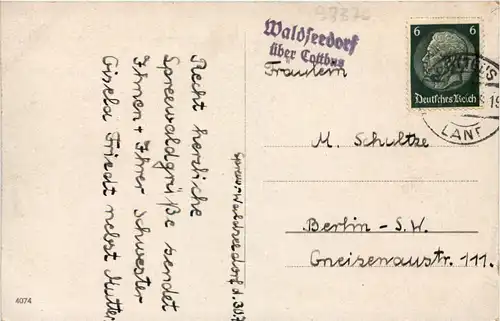 93376
Waldseedorf
über Cottbus
6 6
Deutsches Reich
LAND
Fräulein
M. Schultze
Berlin-S.W.
Gneisenaustr. 111.
Spreew.-Waldseedorf d. 30.7
Recht herzliche
Spreewaldgrüße sendet
Ihnen + Ihrer Schwester
Gisela Friedt nebst Mutter
4074